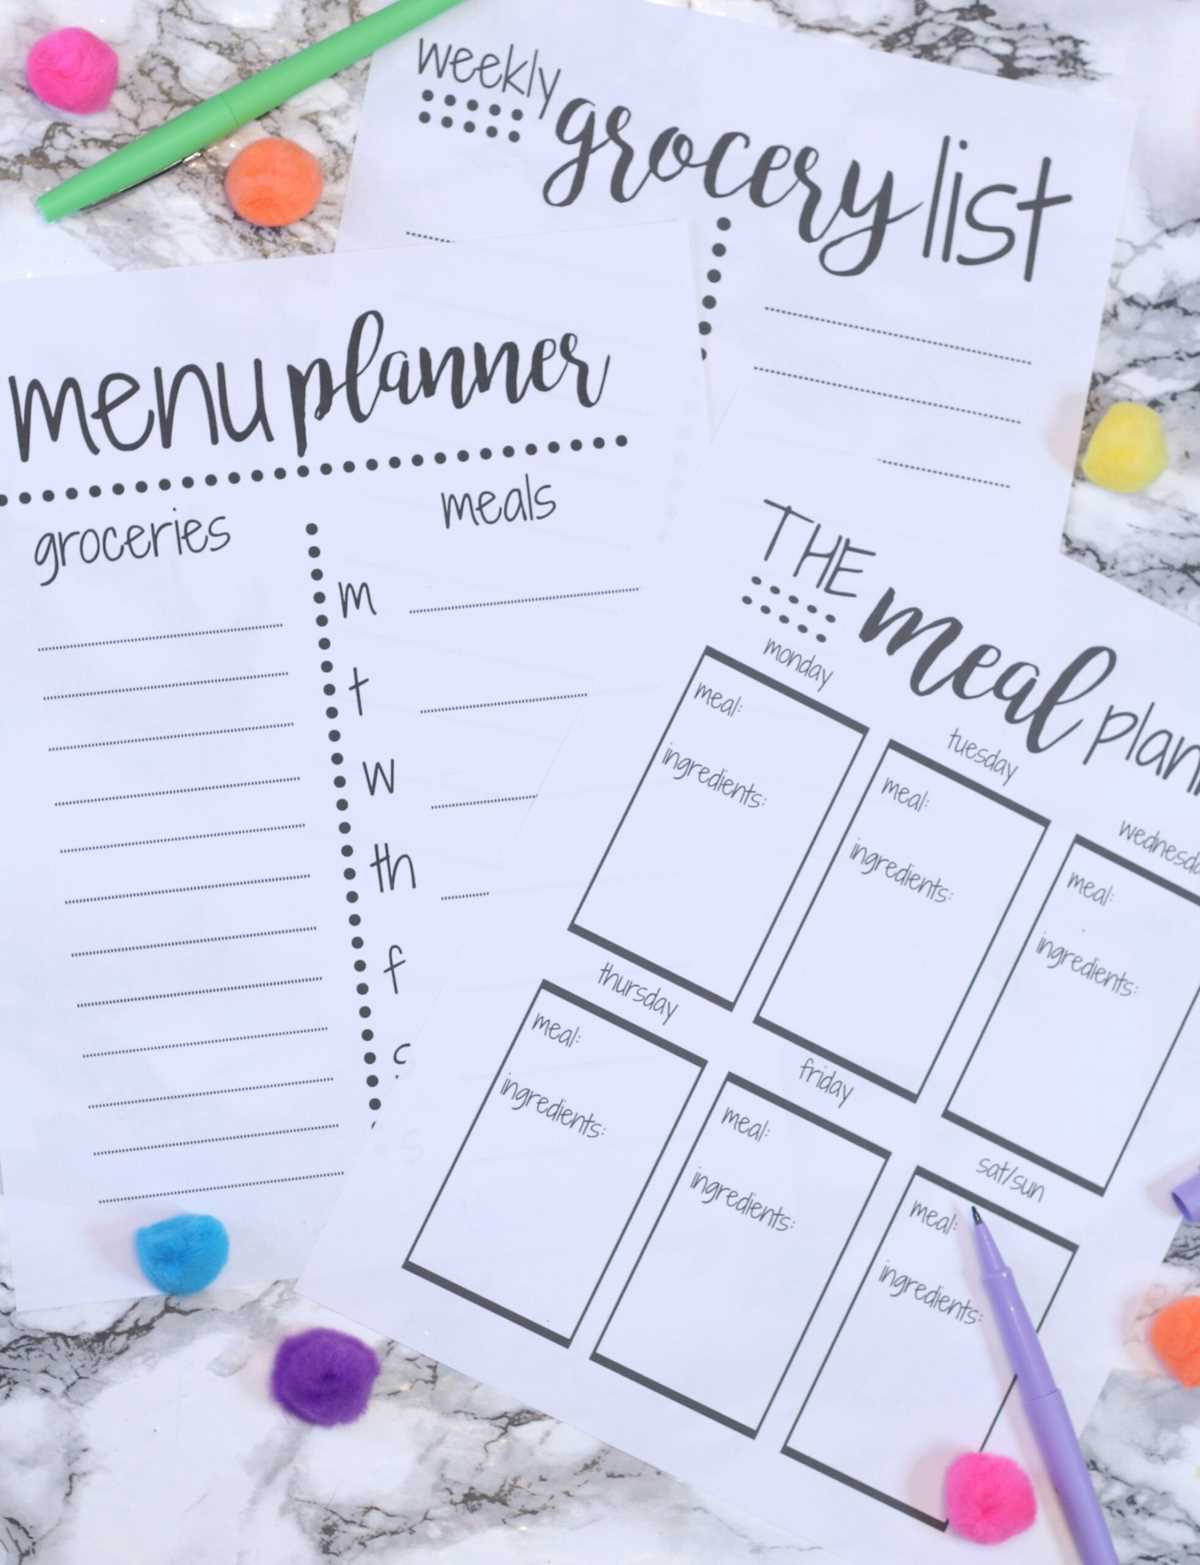 weekly grocery list
menu planner
groceries
meals
m
t
w
th
f
THE meal
monday
meal:
ingredients:
tuesday
meal:
ingredients:
meal:
ingredients:
thursday
meal:
ingredients:
friday
meal:
ingredients:
sat/sun
meal:
ingredients: